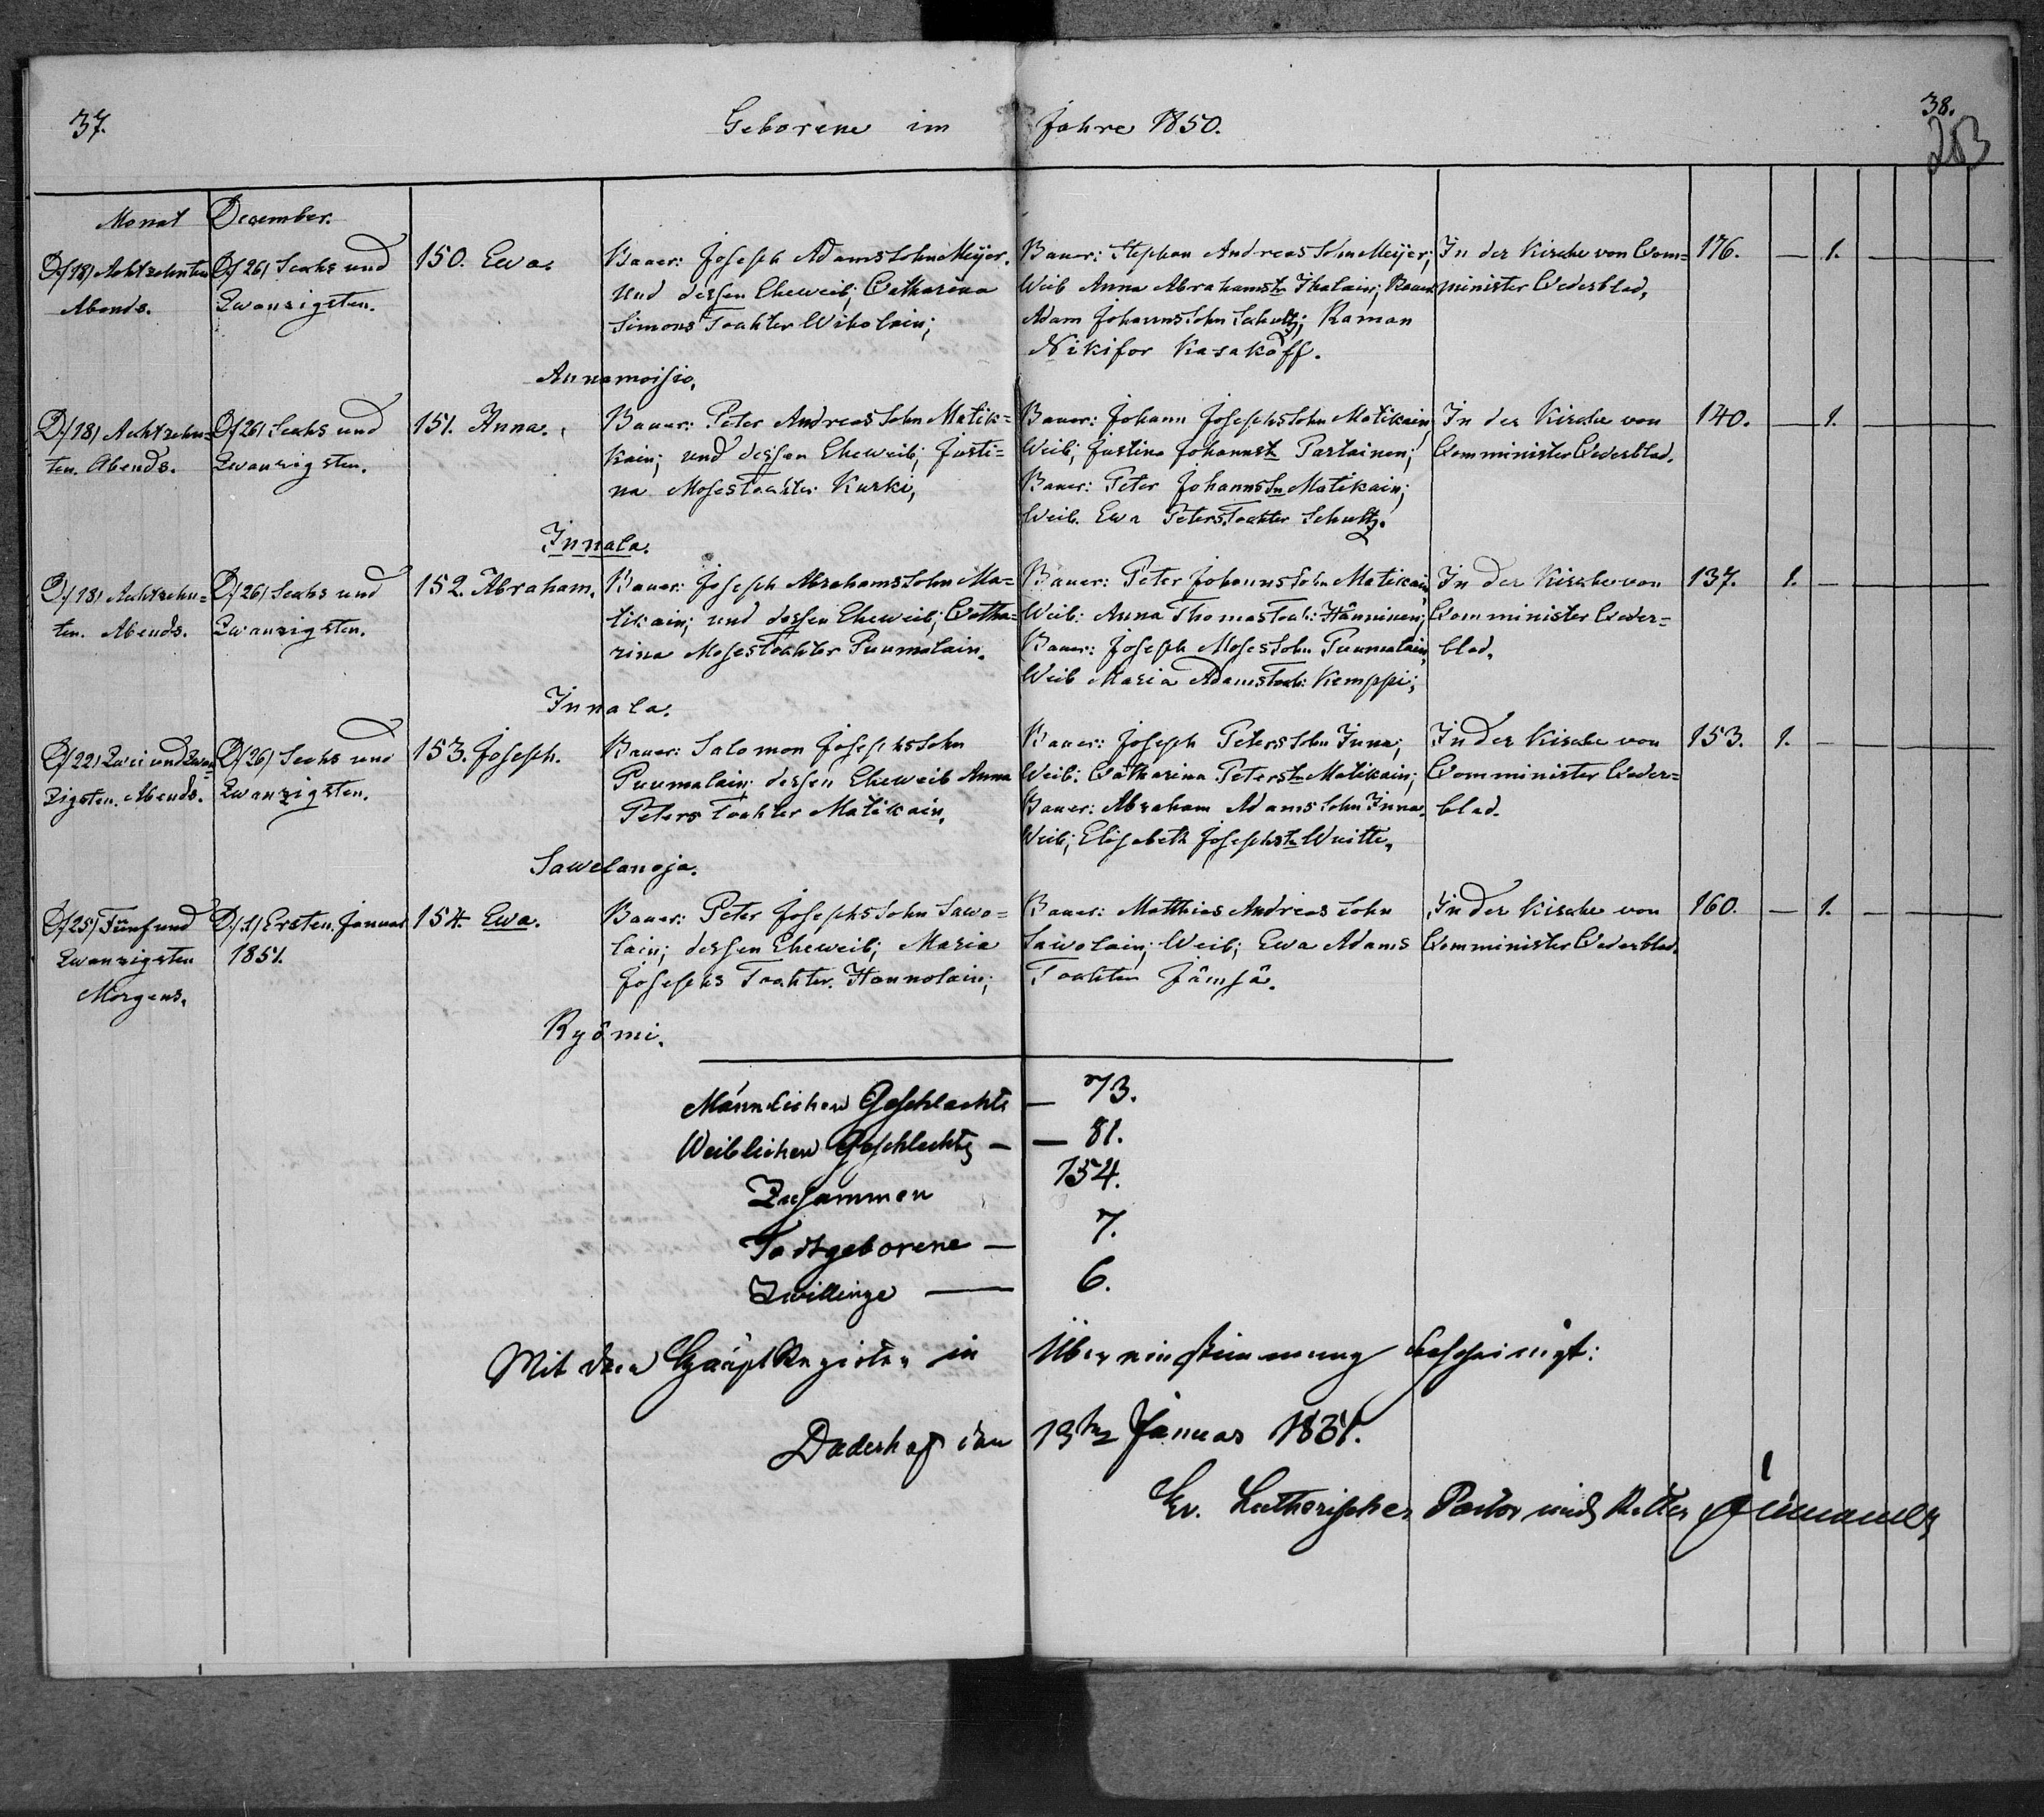 37.
Geborene im Jahre 1850.
38.
203
Monat December.
D/18) Achtzehnten
Abends.
D/26) Sechs und
Zwanzigsten.
150. Ewa.
Bauer: Joseph Adams Sohn Meijer.
Und dessen Eheweib; Catharina
Simons Tochter Wikolain;
Annamoisio.
Bauer: Stephan Andreas Sohn Meijer;
Weib Anna Abrahamstr Ihalain; Bauer
Adam Johanns Sohn Schultz; Raman
Nikifor Kasakoff.
In der Kirche von Com=
minister Cederblad,
176. — 1. —
D/18) Achtzehn=
ten. Abends.
D/26) Sechs und
Zwanzigsten.
151. Anna.
Bauer: Peter Andreas Sohn Matik=
kain; und dessen Eheweib; Justi=
na Moses Tochter Kurki,
Innala.
Bauer: Johann Josephs Sohn Matikain;
Weib; Justina Johannstr Partainen;
Bauer: Peter Johanns Sn Matikain;
Weib. Ewa Peters Tochter Schultz.
In der Kirche von
Comminister Cederblad.
140. — 1. —
D/18) Achtzehn=
ten. Abends.
D/26) Sechs und
Zwanzigsten.
152. Abraham.
Bauer: Joseph Abrahams Sohn Ma=
tikain; und dessen Eheweib; Catha=
rina Moses Tochter Puumalain.
Innala.
Bauer: Peter Johanns Sohn Matikain,
Weib: Anna Thomas Toch: Hänninen;
Bauer: Joseph Moses Sohn Puumalain,
Weib Maria Adams Toch: Kemppi;
In der Kirche von
Comminister Ceder=
blad.
137. 1. —
D/22) Zwei und Zwan=
zigsten. Abends.
D/26) Sechs und
Zwanzigsten.
153. Joseph.
Bauer: Salomon Josephs Sohn
Puumalain; dessen Eheweib Anna
Peters Tochter Matikain,
Sawelanoja.
Bauer: Joseph Peters Sohn Inna;
Weib: Catharina Peterstr Matikain;
Bauer: Abraham Adams Sohn Inna.
Weib; Elisabeth Josephstr Wuitti,
In der Kirche von
Comminister Ceder=
blad.
153. 1. —
D/25) Fünf und
Zwanzigsten
Morgens.
D/1) Ersten Januar
1851.
154. Ewa.
Bauer: Peter Josephs Sohn Sawo=
lain; dessen Eheweib; Maria
Josephs Tochter. Hannolain;
Ryömi.
Bauer: Matthias Andreas Sohn
Sawolain; Weib; Ewa Adams
Tochter Jämsä.
In der Kirche von
Comminister Cederblad.
160. — 1. —
Männlichen Geschlechts — 73.
Weiblichen Geschlechts — 81.
Zusammen 154.
Todtgeborene — 7.
Zwillinge — 6.
Mit dem Haupt Register in Übereinstimmung bescheinigt:
Duderhof den 13ten Januar 1851.
Ev. Lutherischer Pastor und Ritter